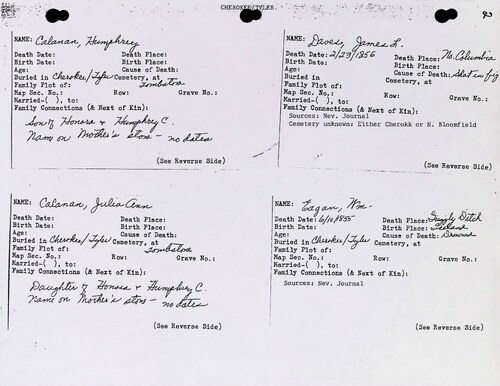 CHEROKEE/TYLER
23
NAME: Calanan, Humphrey
Death Date: Death Place:
Birth Date: Birth Place:
Age: Cause of Death:
Buried in Cherokee/Tyler Cemetery, at
Family Plot of: Tombstone
Map Sec. No.: Row: Grave No.:
Married-( ), to:
Family Connections (& Next of Kin):
Son of Honora & Humphrey C.
Name on Mother's stone - no dates
(See Reverse Side)
NAME: Daves, James L.
Death Date: 2/23/1856 Death Place: No. Columbia
Birth Date: Birth Place:
Age: Cause of Death: Shot in fig
Buried in Cemetery, at
Family Plot of:
Map Sec. No.: Row: Grave No.:
Married-( ), to:
Family Connections (& Next of Kin):
Sources: Nev. Journal
Cemetery unknown: Either Cherokk or N. Bloomfield
(See Reverse Side)
NAME: Calanan, Julia Ann
Death Date: Death Place:
Birth Date: Birth Place:
Age: Cause of Death:
Buried in Cherokee/Tyler Cemetery, at
Family Plot of: Tombstone
Map Sec. No.: Row: Grave No.:
Married-( ), to:
Family Connections (& Next of Kin):
Daughter of Honora & Humphrey C.
Name on Mother's stone - no dates
(See Reverse Side)
NAME: Eagan, Wm.
Death Date: 6/10/1855 Death Place: Grizzly Ditch
Birth Date: Birth Place: Ireland
Age: Cause of Death: Drowned
Buried in Cherokee/Tyler Cemetery, at
Family Plot of:
Map Sec. No.: Row: Grave No.:
Married-( ), to:
Family Connections (& Next of Kin):
Sources: Nev. Journal
(See Reverse Side)